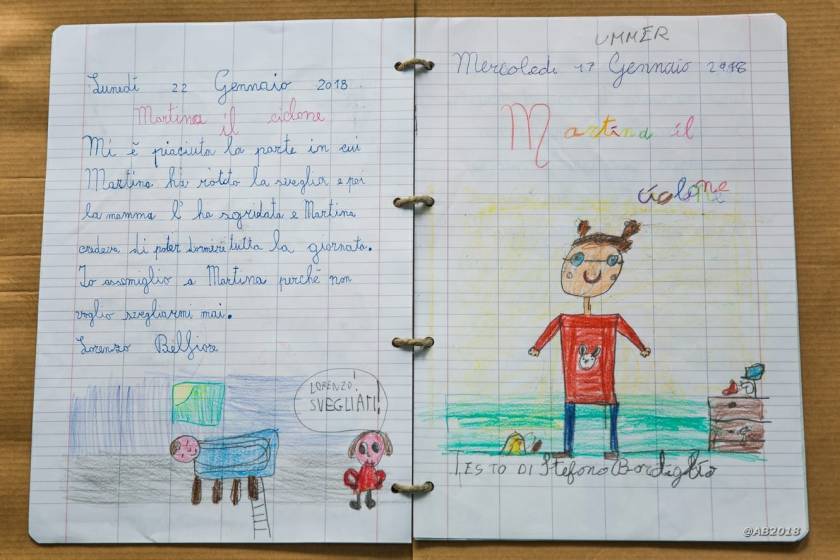 Lunedì 22 Gennaio 2018
Martina il ciclone
Mi è piaciuta la parte in cui
Martina ha rotto la sveglia e poi
la mamma l'ha sgridata e Martina
credeva di poter dormire tutta la giornata.
Io assomiglio a Martina perché non
voglio svegliarmi mai.
Lorenzo Belfiore
LORENZO!
SVEGLIATI!
UMMER
Mercoledi 17 Gennaio 2018
Martina il
ciclone
TESTO DI Stefano Bordiglio
@AB2018